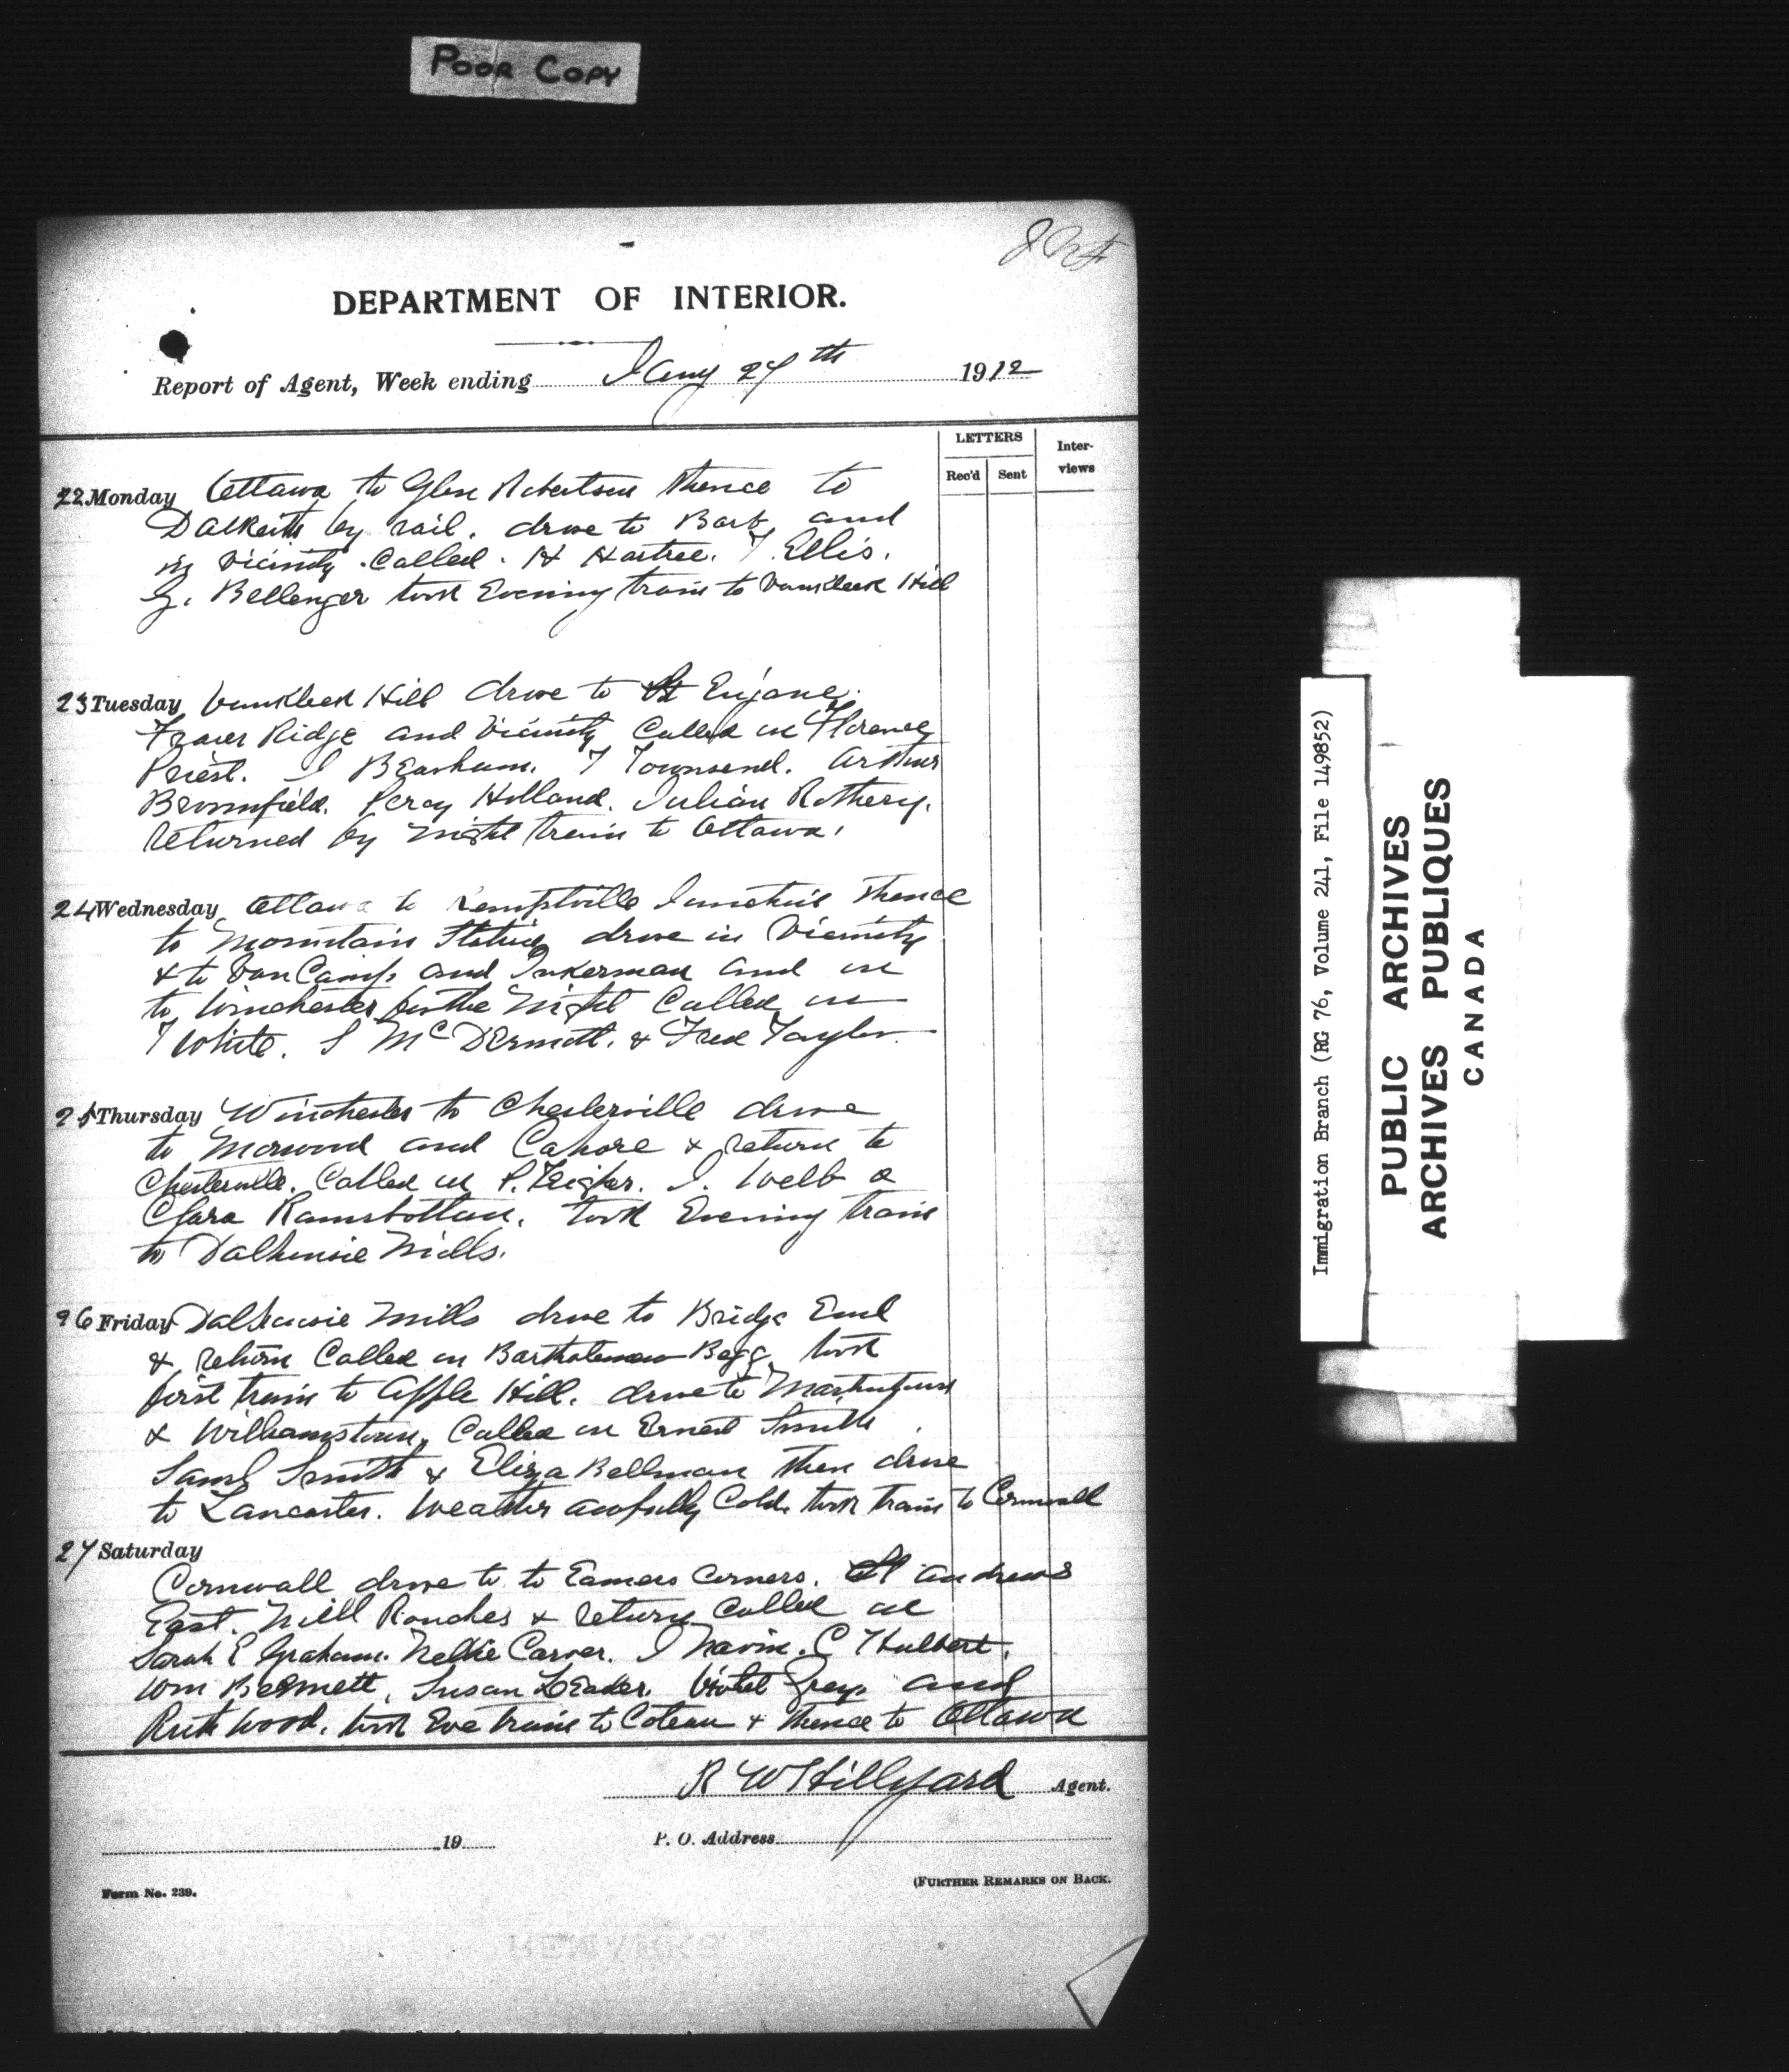 POOR COPY
DEPARTMENT OF INTERIOR.
Report of Agent, Week ending Jany 27th 1912
LETTERS
Inter-
views
Rec'd Sent
22 Monday Ottawa to Glen Robertson thence to
Dalkeith by rail. drive to Barb and
in vicinity. Called. H Hartree. T. Ellis.
G. Bellenger took Evening train to Vankleek Hill
23 Tuesday Vankleek Hill drive to St Eugane.
Fraser Ridge and Vicinity Called on Florence
Priest. J Bearham. T Townsend. Arthur
Bromfield. Percy Holland. Julian Rothery.
returned by night train to Ottawa.
24 Wednesday Ottawa to Kemptville Junction thence
to Mountain Station drive in Vicinity
& to Van Camp and Inkerman and on
to Winchester for the night Called on
T White. S McDermott. & Fred Taylor.
25 Thursday Winchester to Chesterville drive
to Morwood and Cahore & return to
Chesterville. Called on P. J. Webb &
Clara Ramsbottom. took Evening train
to Dalhousie Mills.
26 Friday Dalhousie Mills drive to Bridge End
& return Called on Bartholomew Begg. took
first train to Apple Hill. drive to Martintown
& Williamstown. Called on Ernest Smith
Saml Smith & Eliza Bellman then drive
to Lancaster. Weather awfully Cold. took train to Cornwall
27 Saturday
Cornwall drive to to Eamers Corners. St Andrews
East. Mill Rouches & return Called on
Sarah E Graham. Nellie Carver. J Navin. C Hulbert.
Wm Bennett, Susan Leader. Violet Grey and
Ruth Wood. took Eve train to Coteau & thence to Ottawa
R W Hillyard Agent.
19 P. O. Address
Form No. 239.
(FURTHER REMARKS ON BACK.
Immigration Branch (RG 76, Volume 241, File 149852)
PUBLIC ARCHIVES
ARCHIVES PUBLIQUES
CANADA